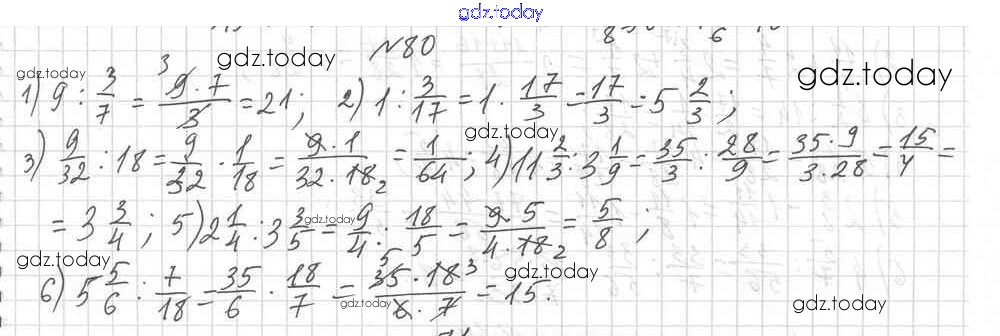 gdz.today
№80
gdz.today gdz.today gdz.today
1) 9 : 3/7 = 9·7/3 = 21; 2) 1 : 3/17 = 1 · 17/3 = 17/3 = 5 2/3;
gdz.today
3) 9/32 : 18 = 9/32 · 1/18 = 9·1/32·18 = 1/64; 4) 11 2/3 : 3 1/9 = 35/3 : 28/9 = 35·9/3·28 = 15/4 =
= 3 3/4; 5) 2 1/4 : 3 3/5 = 9/4 : 18/5 = 9·5/4·18 = 5/8;
gdz.today
gdz.today gdz.today
6) 5 5/6 : 7/18 = 35/6 · 18/7 = 35·18/6·7 = 15.
gdz.today gdz.today